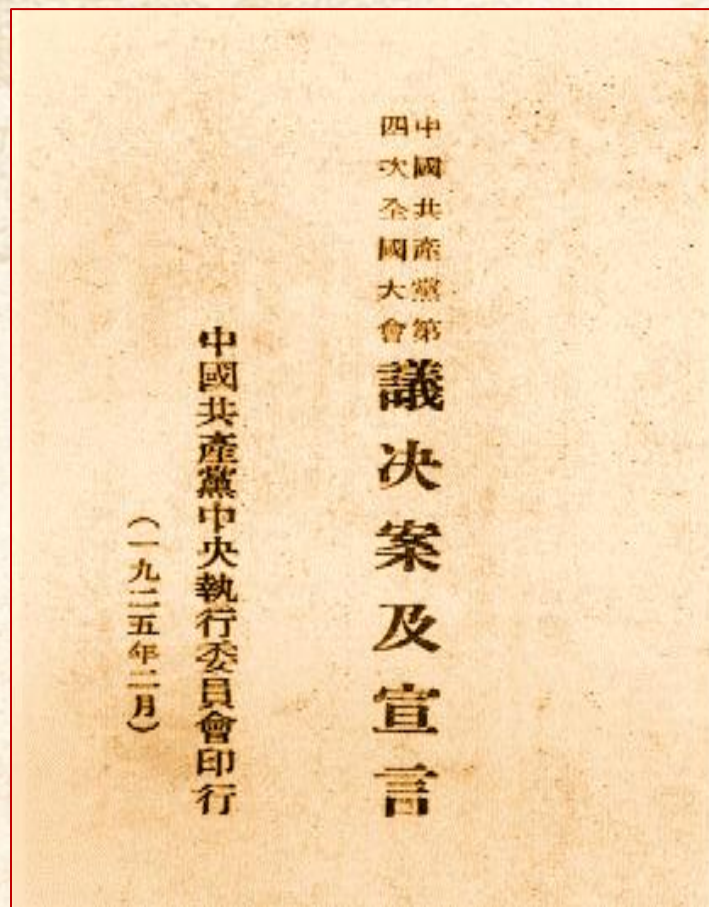 中國共產黨第
四次全國大會
議决案及宣言
中國共產黨中央執行委員會印行
（一九二五年二月）